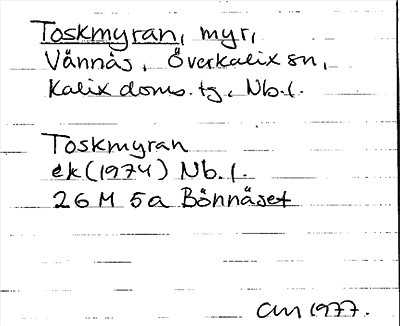 Toskmyran, myr,
Vännäs, Överkalix sn,
Kalix doms. tg, Nb. l.
Toskmyran
ek (1974) Nb. l.
26 M 5a Bönnäset
1977.